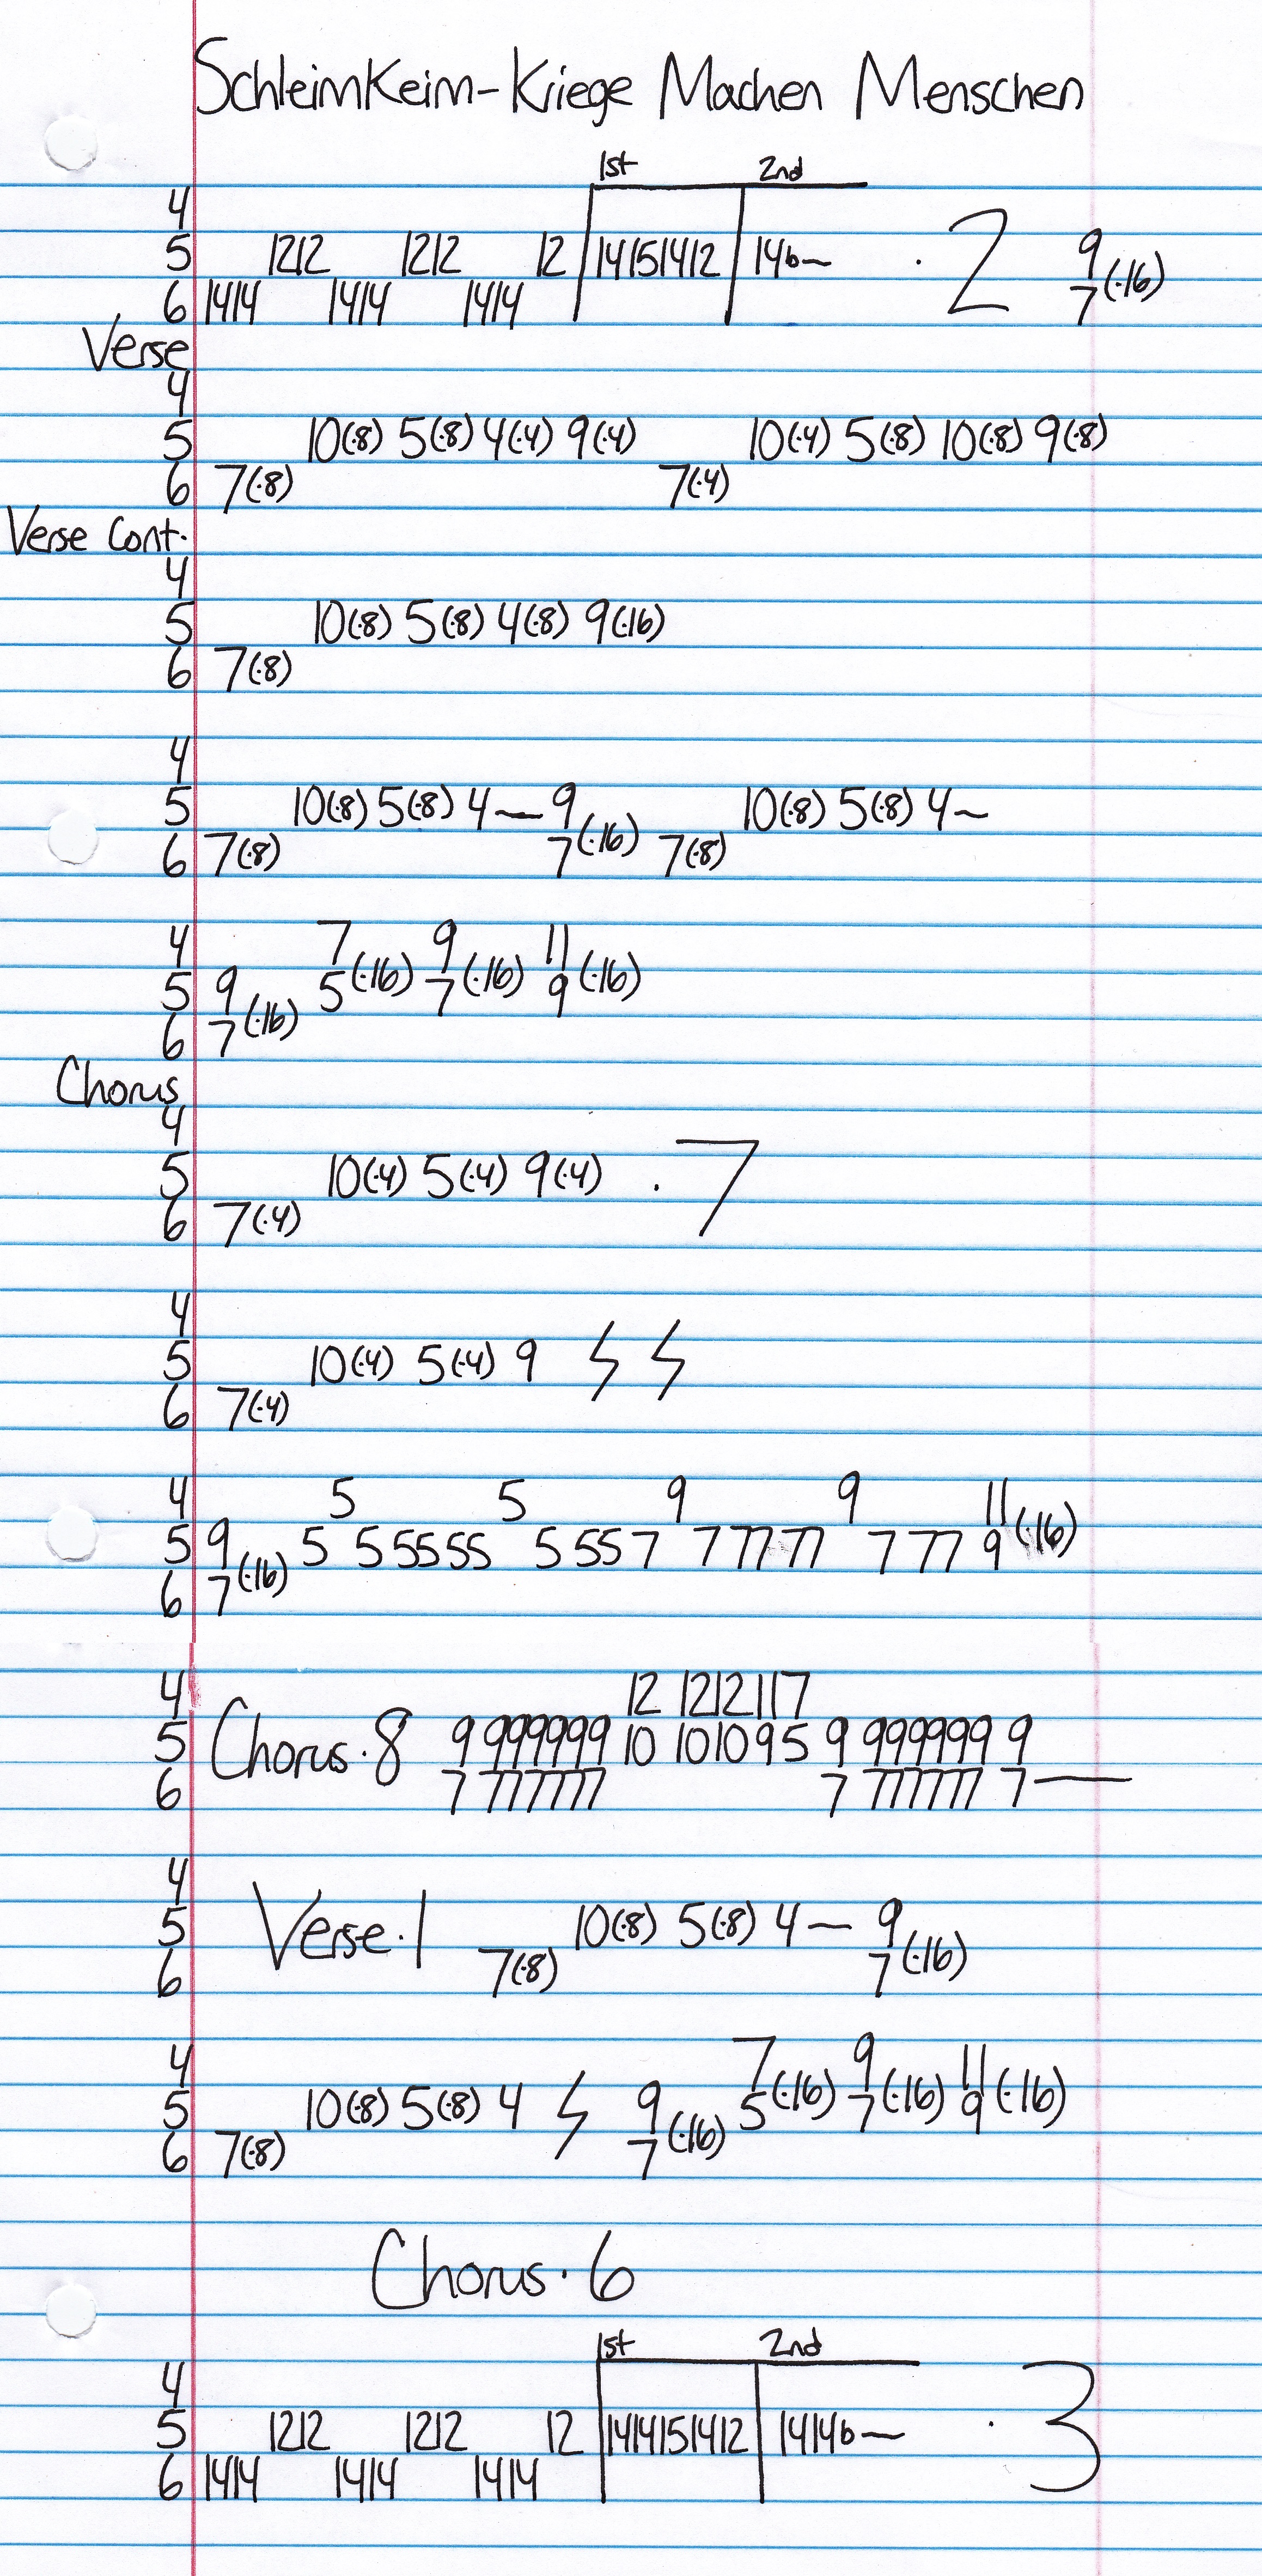 Schleimkeim-Kriege Machen Menschen
1st 2nd
4
5 1212 1212 12 14151412 14b~ · 2 9
6 1414 1414 1414 7(·16)
Verse
4
5 10(·8) 5(·8) 4(·4) 9(·4) 10(·4) 5(·8) 10(·8) 9(·8)
6 7(·8) 7(·4)
Verse Cont.
4
5 10(·8) 5(·8) 4(·8) 9(·16)
6 7(·8)
4
5 10(·8) 5(·8) 4~ 9 10(·8) 5(·8) 4~
6 7(·8) 7(·16) 7(·8)
4 7 9 11
5 9 5(·16) 7(·16) 9(·16)
6 7(·16)
Chorus
4
5 10(·4) 5(·4) 9(·4) · 7
6 7(·4)
4
5 10(·4) 5(·4) 9
6 7(·4)
4 5 5 9 9 11
5 9 5 5 5555 5 55 7 7 77 77 7 77 9(·16)
6 7(·16)
4 12 1212 11 7
5 Chorus · 8 9 999999 10 1010 9 5 9 999999 9
6 7 777777 7 777777 7—
4
5 Verse · 1 10(·8) 5(·8) 4 — 9
6 7(·8) 7(·16)
4 7 9 11
5 10(·8) 5(·8) 4 9 5(·16) 7(·16) 9(·16)
6 7(·8) 7(·16)
Chorus · 6
1st 2nd
4
5 1212 1212 12 1414151412 1414b~ · 3
6 1414 1414 1414